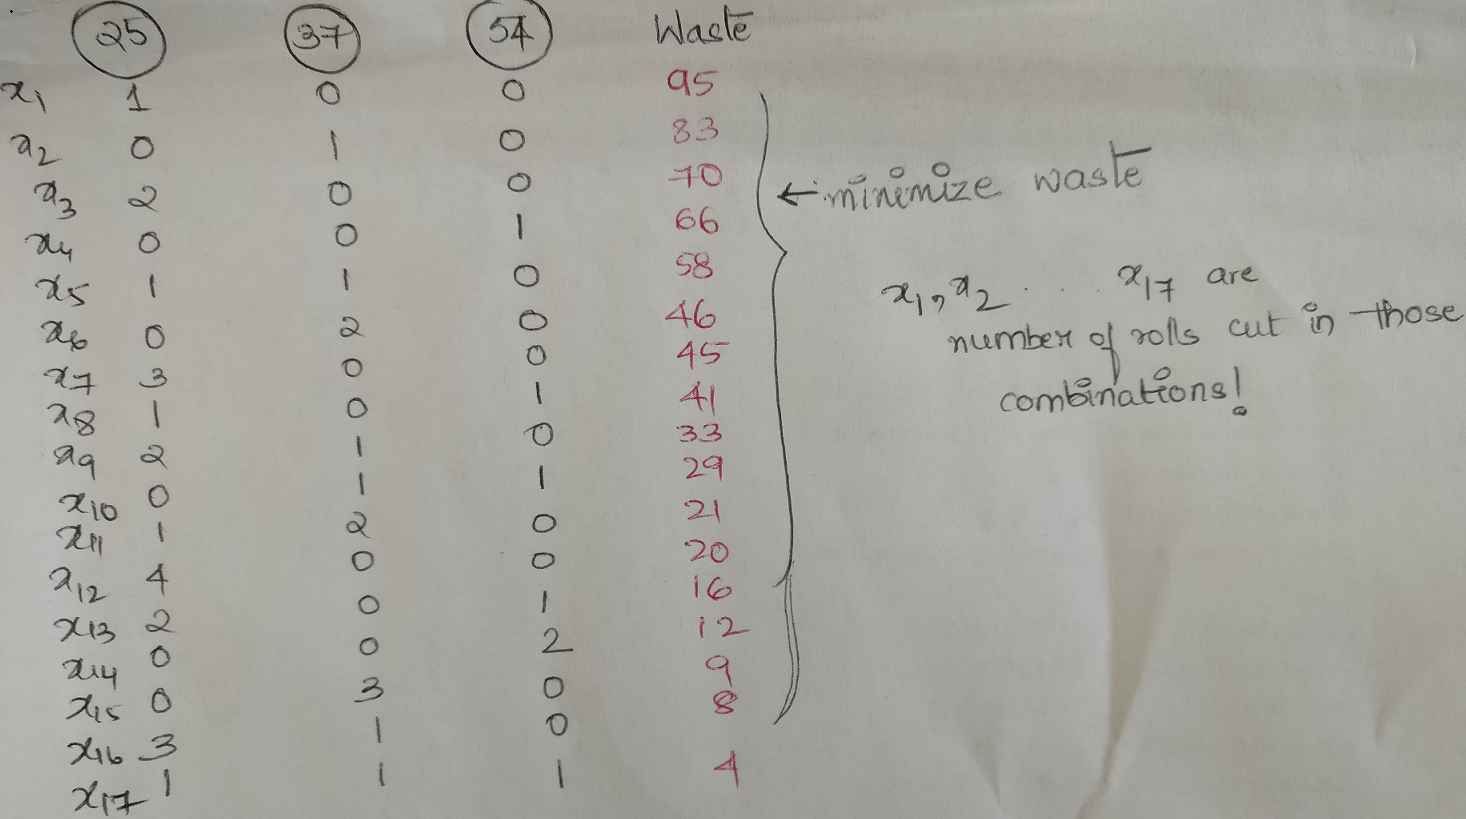 25 37 54 Waste
x1 1 0 0 95
x2 0 1 0 83
x3 2 0 0 70
x4 0 0 1 66
x5 1 1 0 58
x6 0 2 0 46
x7 3 0 0 45
x8 1 0 1 41
x9 2 1 0 33
x10 0 1 1 29
x11 1 2 0 21
x12 4 0 0 20
x13 2 0 1 16
x14 0 0 2 12
x15 0 3 0 9
x16 3 1 0 8
x17 1 1 1 4
← minimize waste
x1, x2 . . . . x17 are
number of rolls cut in those
combinations!